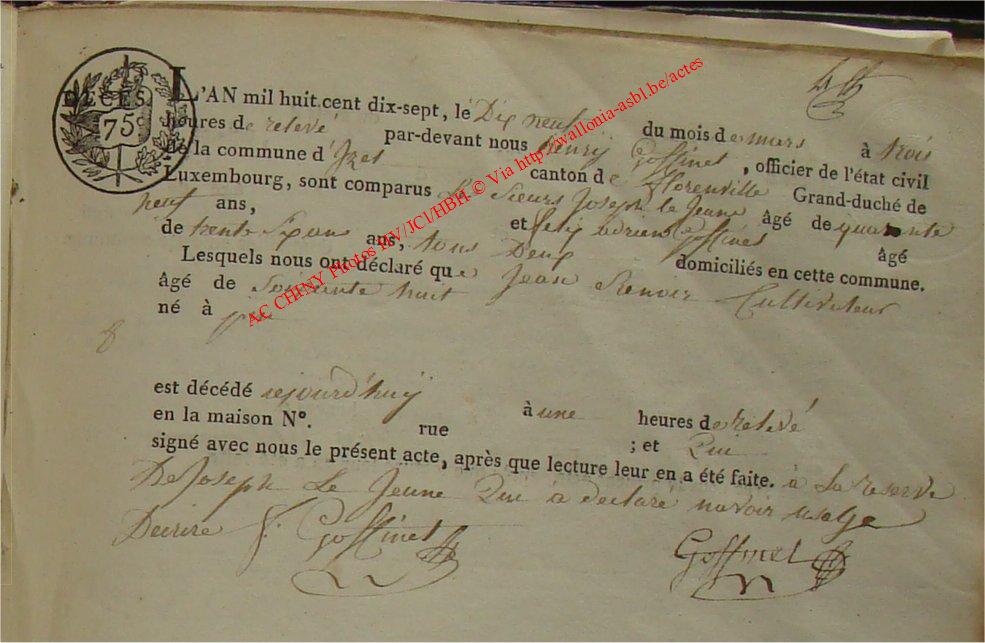 DÉCÈS.
75
L'AN mil huit cent dix-sept, le Dix neuf du mois de mars à trois
heures de relevé par-devant nous henry Goffinet, officier de l'état civil
de la commune d'Izel canton de florenville Grand-duché de
Luxembourg, sont comparus Les Sieurs Joseph le Jeune âgé de quarante
neuf ans, et felix adrien Goffinet âgé
de trente Six ans ans, tous Deux domiciliés en cette commune.
Lesquels nous ont déclaré que Jean Renoir Cultivateur
âgé de Soixante huit
né à
8
est décédé cejourd'huy à une heures de relevé
en la maison N°. rue ; et Qui
signé avec nous le présent acte, après que lecture leur en a été faite. à La reserve
De Joseph Le Jeune Qui à declaré navoir usage
Decrire f. Goffinet Goffinet
AC CHINY Photos RV/JCl/HBH © Via http://wallonia-asbl.be/actes